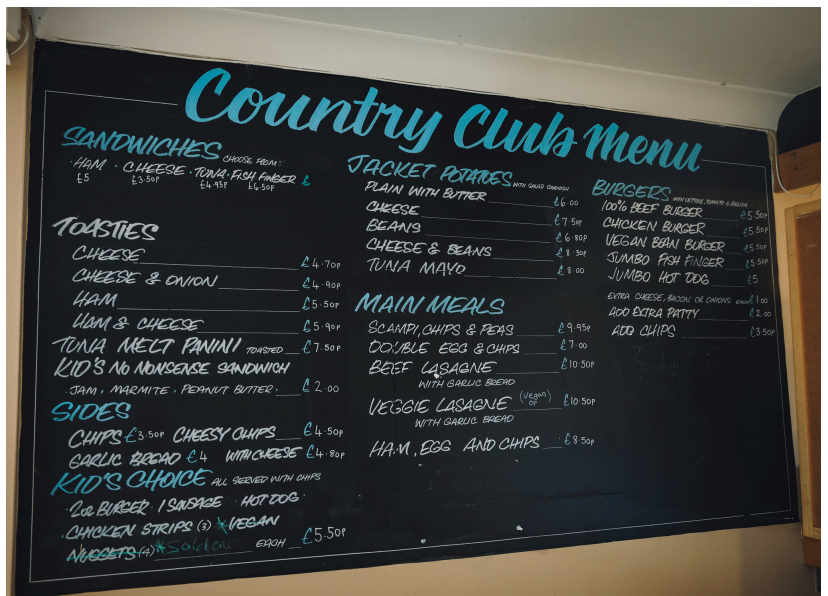 Country Club Menu
SANDWICHES CHOOSE FROM:
· HAM · CHEESE · TUNA · FISH FINGER £
£5 £3.50P £4.95P £6.50P
TOASTIES
CHEESE £4.70P
CHEESE & ONION £4.90P
HAM £5.50P
HAM & CHEESE £5.90P
TUNA MELT PANINI TOASTED £7.50P
KID'S NO NONSENSE SANDWICH
JAM · MARMITE · PEANUT BUTTER · £2.00
SIDES
CHIPS £3.50P CHEESY CHIPS £4.50P
GARLIC BREAD £4 WITH CHEESE £4.80P
KID'S CHOICE ALL SERVED WITH CHIPS
· 2oz BURGER · 1 SAUSAGE · HOT DOG ·
· CHICKEN STRIPS (3) * VEGAN
NUGGETS (4) * Sold out EACH £5.50P
JACKET POTATOES WITH SALAD GARNISH
PLAIN WITH BUTTER £6.00
CHEESE £7.50P
BEANS £6.80P
CHEESE & BEANS £8.30P
TUNA MAYO £8.00
MAIN MEALS
SCAMPI, CHIPS & PEAS £9.95P
DOUBLE EGG & CHIPS £7.00
BEEF LASAGNE £10.50P
WITH GARLIC BREAD
VEGGIE LASAGNE (Vegan OP) £10.50P
WITH GARLIC BREAD
HAM, EGG AND CHIPS £8.50P
BURGERS WITH LETTUCE, TOMATO & RELISH
100% BEEF BURGER £5.50P
CHICKEN BURGER £5.50P
VEGAN BEAN BURGER £5.50P
JUMBO FISH FINGER £5.50P
JUMBO HOT DOG £5
EXTRA CHEESE, BACON OR ONIONS EACH £1.00
ADD EXTRA PATTY £2.00
ADD CHIPS £3.50P